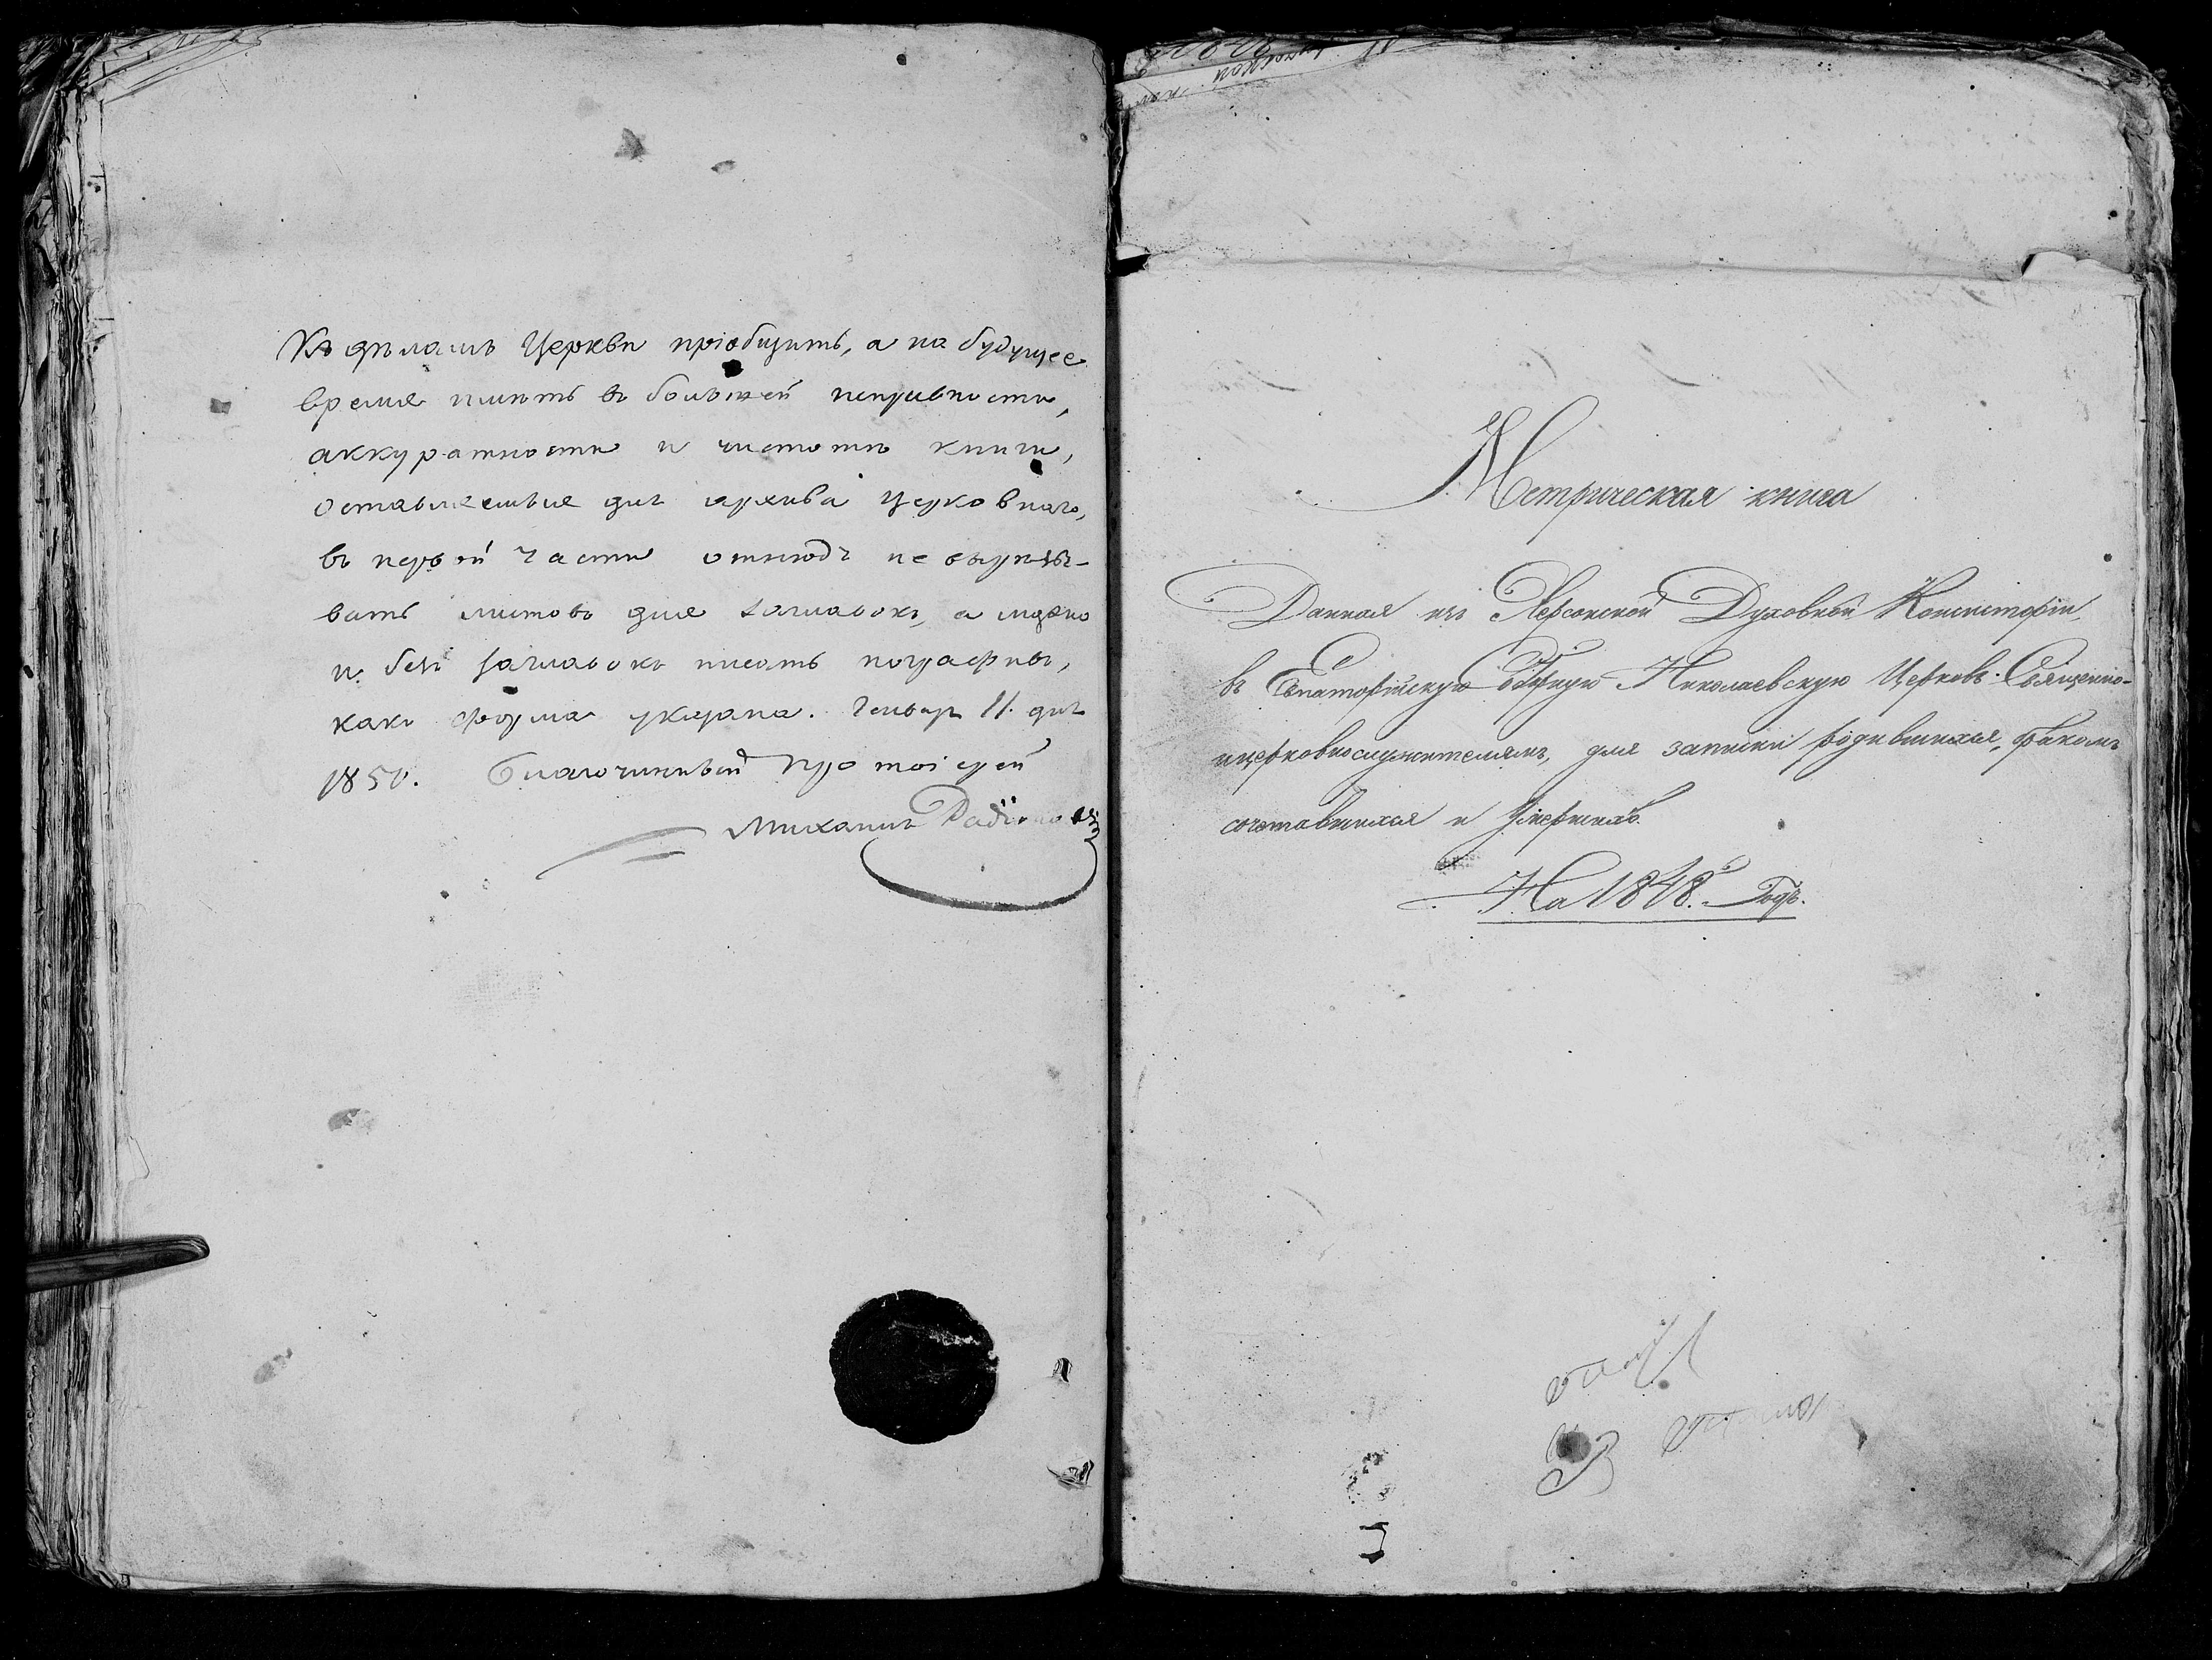 Къ дѣламъ Церкви пріобщить, а на будущее
время имѣть въ большей исправности,
аккуратности и чистотѣ книги,
оставляемыя для архива церковнаго,
въ первой части отнюдъ не вырѣзы-
вать листовъ для заглавокъ, а можно
и безъ заглавокъ писать пографно,
какъ форма указана. Генвар 11. дня
1850. Благочинный Протоіерей
Михаилъ
Метрическая книга
Данная изъ Херсонской Духовной Консисторіи,
въ Евпаторійскую Николаевскую Церковь. Священно-
ицерковнослужителямъ, для записки родившихся, бракомъ
сочетавшихся и Умершихъ.
На 1848.й Годъ.